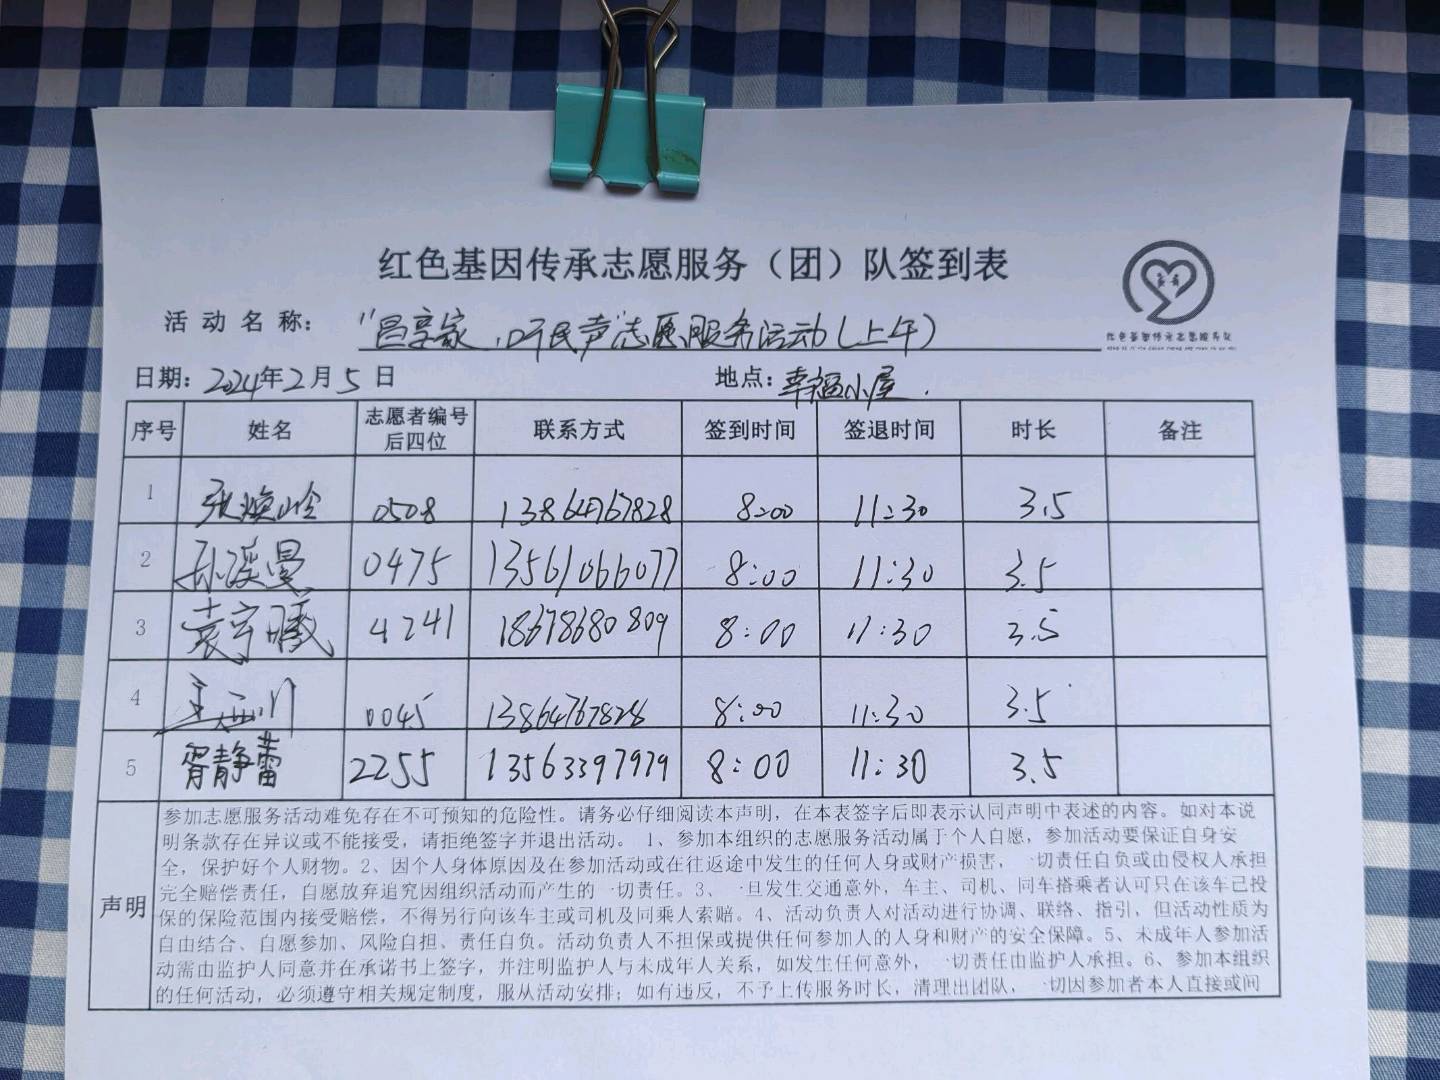 红色基因传承志愿服务（团）队签到表
活动名称： "昌享家，听民声"志愿服务活动(上午)
红色基因传承志愿服务队
日期：2024年2月5日 地点：幸福小屋.
序号 姓名 志愿者编号后四位 联系方式 签到时间 签退时间 时长 备注
1 张焕岭 0508 13864767828 8:00 11:30 3.5
2 孙溪曼 0475 13561066077 8:00 11:30 3.5
3 袁宇曦 4241 18678680809 8:00 11:30 3.5
4 0045 13864767828 8:00 11:30 3.5
5 胥静蕾 2255 13563397979 8:00 11:30 3.5
声明
参加志愿服务活动难免存在不可预知的危险性。请务必仔细阅读本声明，在本表签字后即表示认同声明中表述的内容。如对本说
明条款存在异议或不能接受，请拒绝签字并退出活动。1、参加本组织的志愿服务活动属于个人自愿，参加活动要保证自身安
全，保护好个人财物。2、因个人身体原因及在参加活动或在往返途中发生的任何人身或财产损害，一切责任自负或由侵权人承担
完全赔偿责任，自愿放弃追究因组织活动而产生的一切责任。3、一旦发生交通意外，车主、司机、同车搭乘者认可只在该车已投
保的保险范围内接受赔偿，不得另行向该车主或司机及同乘人索赔。4、活动负责人对活动进行协调、联络、指引，但活动性质为
自由结合、自愿参加、风险自担、责任自负。活动负责人不担保或提供任何参加人的人身和财产的安全保障。5、未成年人参加活
动需由监护人同意并在承诺书上签字，并注明监护人与未成年人关系，如发生任何意外，一切责任由监护人承担。6、参加本组织
的任何活动，必须遵守相关规定制度，服从活动安排；如有违反，不予上传服务时长，清理出团队，一切因参加者本人直接或间